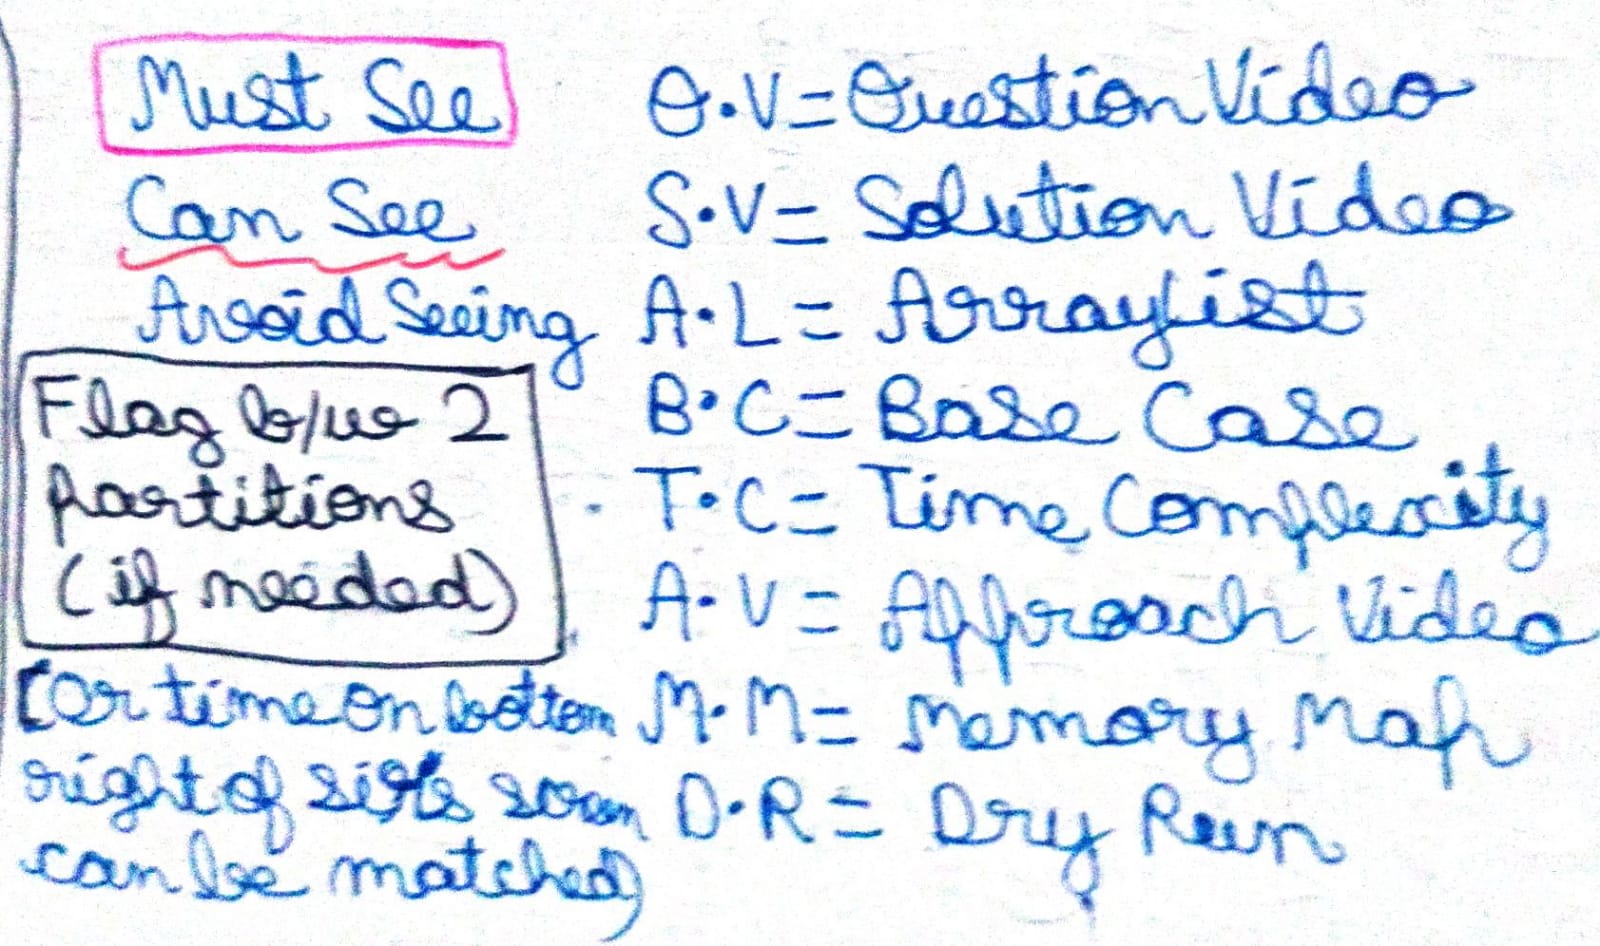 Must See
Can See
Avoid Seeing
Flag b/w 2
partitions
(if needed)
(or time on bottom
right of
can be matched)
Q.V = Question Video
S.V = Solution Video
A.L = ArrayList
B.C = Base Case
T.C = Time Complexity
A.V = Approach Video
M.M = Memory Map
D.R = Dry Run